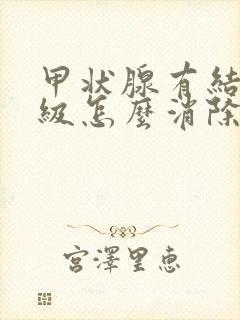 甲状腺有結
級怎麼消除
宮澤里惠